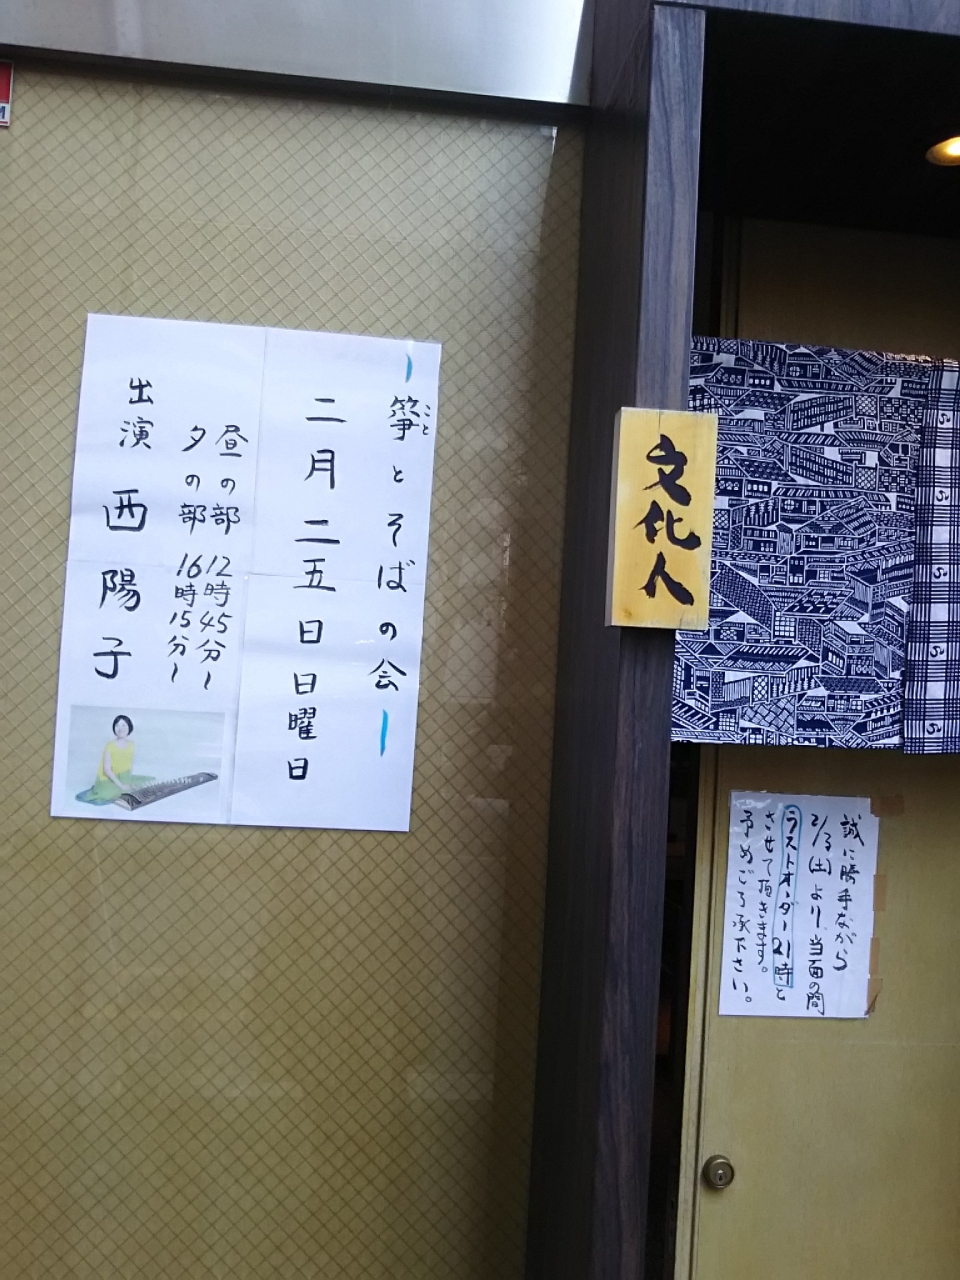 筝とそばの会
こと
二月二五日日曜日
昼の部 12時45分〜
夕の部 16時15分〜
出演 西陽子
文化人
誠に勝手ながら
2/3(土)より当面の間
ラストオーダー21時と
させて頂きます。
予めご了承下さい。